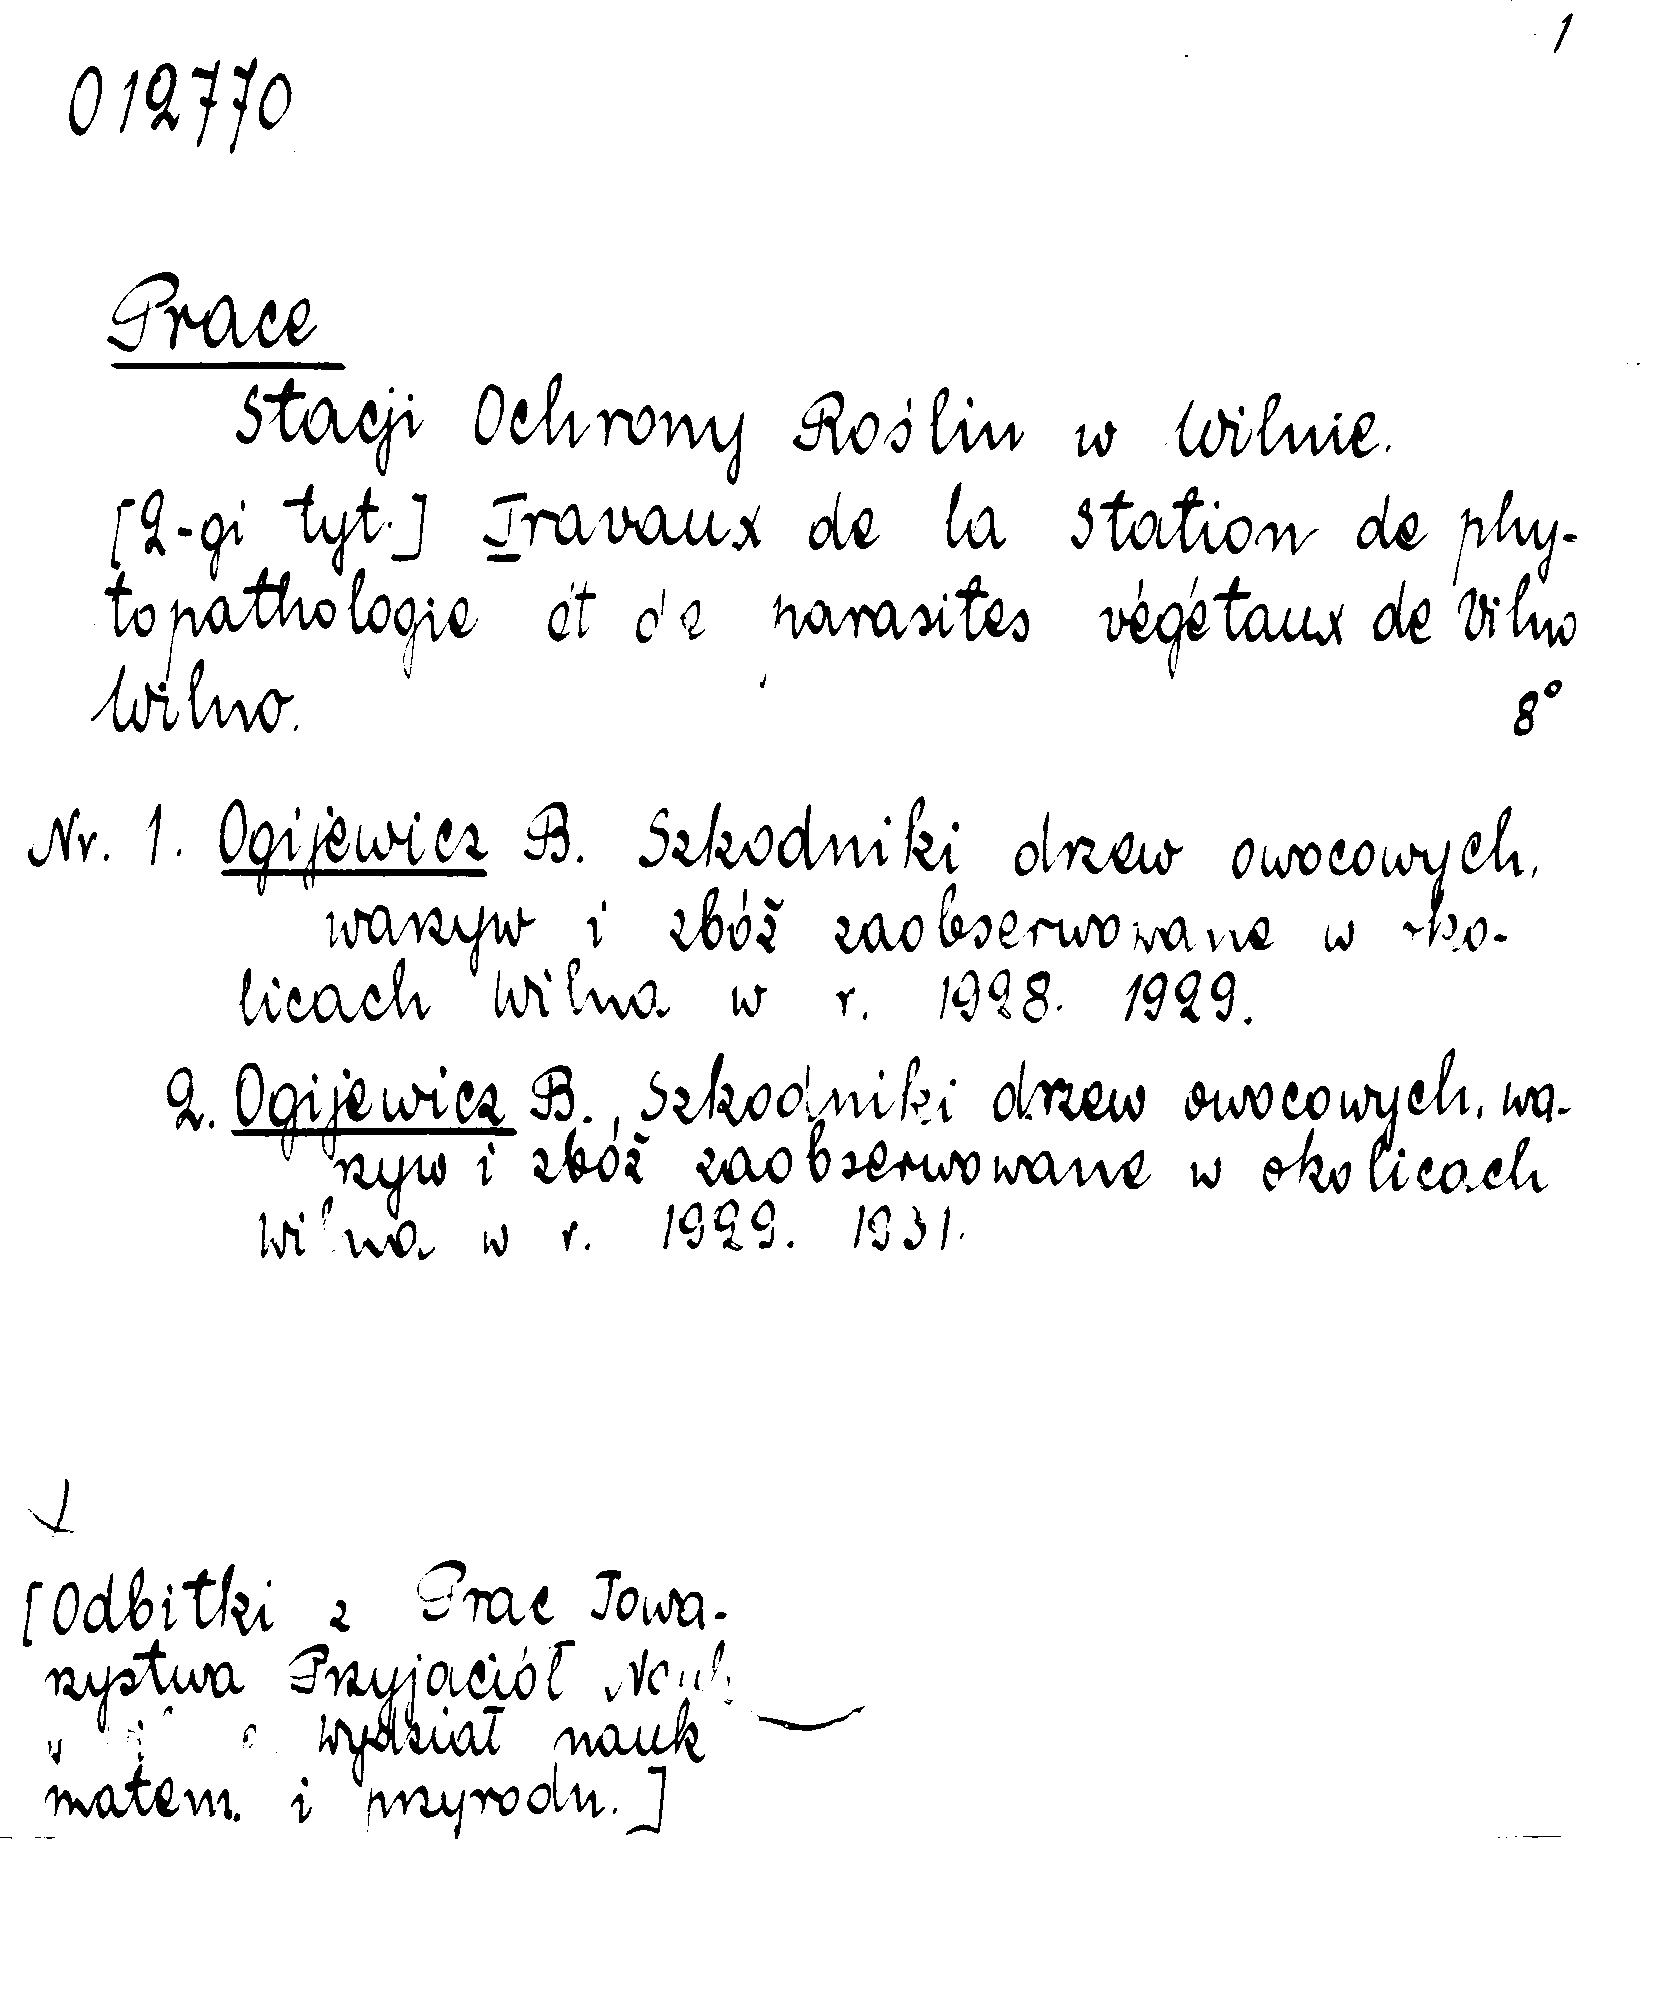 1
012770
Prace
Stacji Ochrony Roślin w Wilnie.
[2-gi tyt.] Travaux de la Station de phy-
topathologie et de parasites végétaux de Vilno
Wilno. 8°
Nr. 1. Ogijewicz B. Szkodniki drzew owocowych,
warzyw i zbóż zaobserwowane w oko-
licach Wilna w r. 1928. 1929.
2. Ogijewicz B., Szkodniki drzew owocowych, wa-
rzyw i zbóż zaobserwowane w okolicach
Wilna w r. 1929. 1931.
[Odbitki z Prac Towa-
rzystwa Przyjaciół Nauk
w wydział nauk
matem. i przyrodn.]